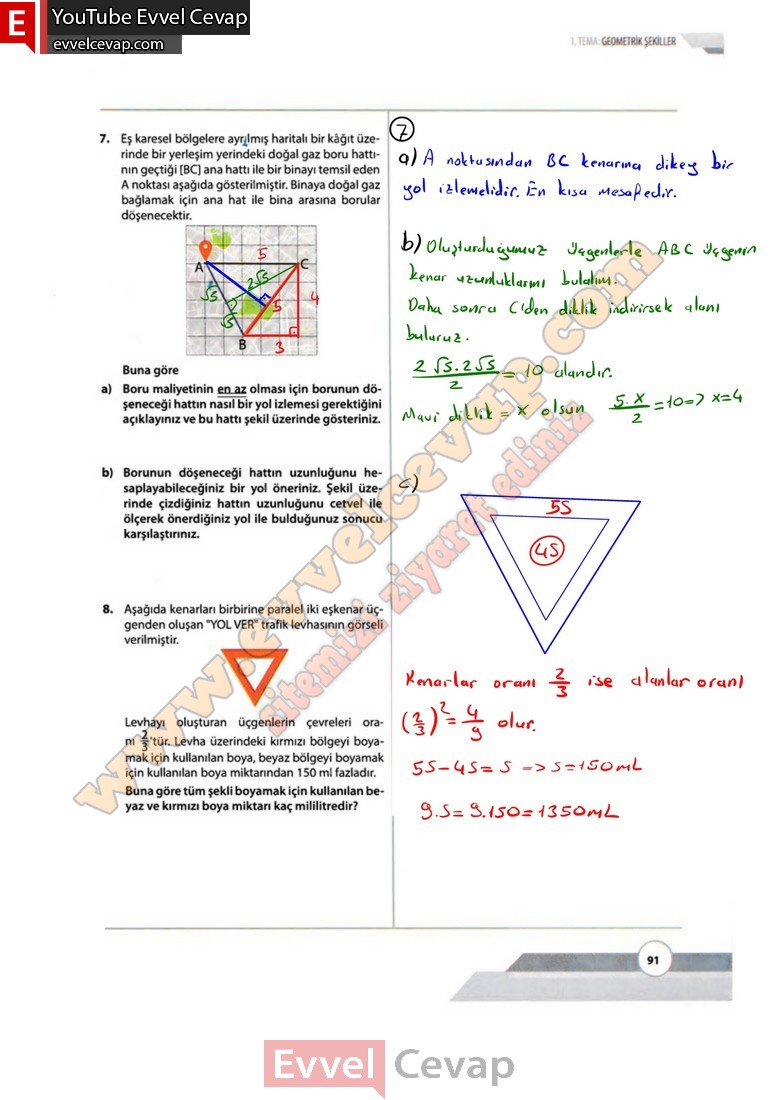 YouTube Evvel Cevap
evvelcevap.com
1. TEMA: GEOMETRİK ŞEKİLLER
7. Eş karesel bölgelere ayrılmış haritalı bir kâğıt üze-
rinde bir yerleşim yerindeki doğal gaz boru hattı-
nın geçtiği [BC] ana hattı ile bir binayı temsil eden
A noktası aşağıda gösterilmiştir. Binaya doğal gaz
bağlamak için ana hat ile bina arasına borular
döşenecektir.
A
C
B
5
2√5
√5
√5
5
4
3
2
2
Buna göre
a) Boru maliyetinin en az olması için borunun dö-
şeneceği hattın nasıl bir yol izlemesi gerektiğini
açıklayınız ve bu hattı şekil üzerinde gösteriniz.
b) Borunun döşeneceği hattın uzunluğunu he-
saplayabileceğiniz bir yol öneriniz. Şekil üze-
rinde çizdiğiniz hattın uzunluğunu cetvel ile
ölçerek önerdiğiniz yol ile bulduğunuz sonucu
karşılaştırınız.
8. Aşağıda kenarları birbirine paralel iki eşkenar üç-
genden oluşan "YOL VER" trafik levhasının görseli
verilmiştir.
Levhayı oluşturan üçgenlerin çevreleri ora-
nı 2/3'tür. Levha üzerindeki kırmızı bölgeyi boya-
mak için kullanılan boya, beyaz bölgeyi boyamak
için kullanılan boya miktarından 150 ml fazladır.
Buna göre tüm şekli boyamak için kullanılan be-
yaz ve kırmızı boya miktarı kaç mililitredir?
7
a) A noktasından BC kenarına dikey bir
yol izlemelidir. En kısa mesafedir.
b) Oluşturduğumuz üçgenlerle ABC üçgenin
kenar uzunluklarını bulalım.
Daha sonra C'den diklik indirirsek alanı
buluruz.
2√5.2√5/2 = 10 alandır.
Mavi diklik = x olsun 5.x/2 = 10 => x=4
c)
5S
4S
Kenarlar oranı 2/3 ise alanlar oranı
(2/3)² = 4/9 olur.
5S-4S = S => S=150mL
9.S = 9.150 = 1350mL
www.evvelcevap.com
sitemizi ziyaret ediniz
91
Evvel Cevap